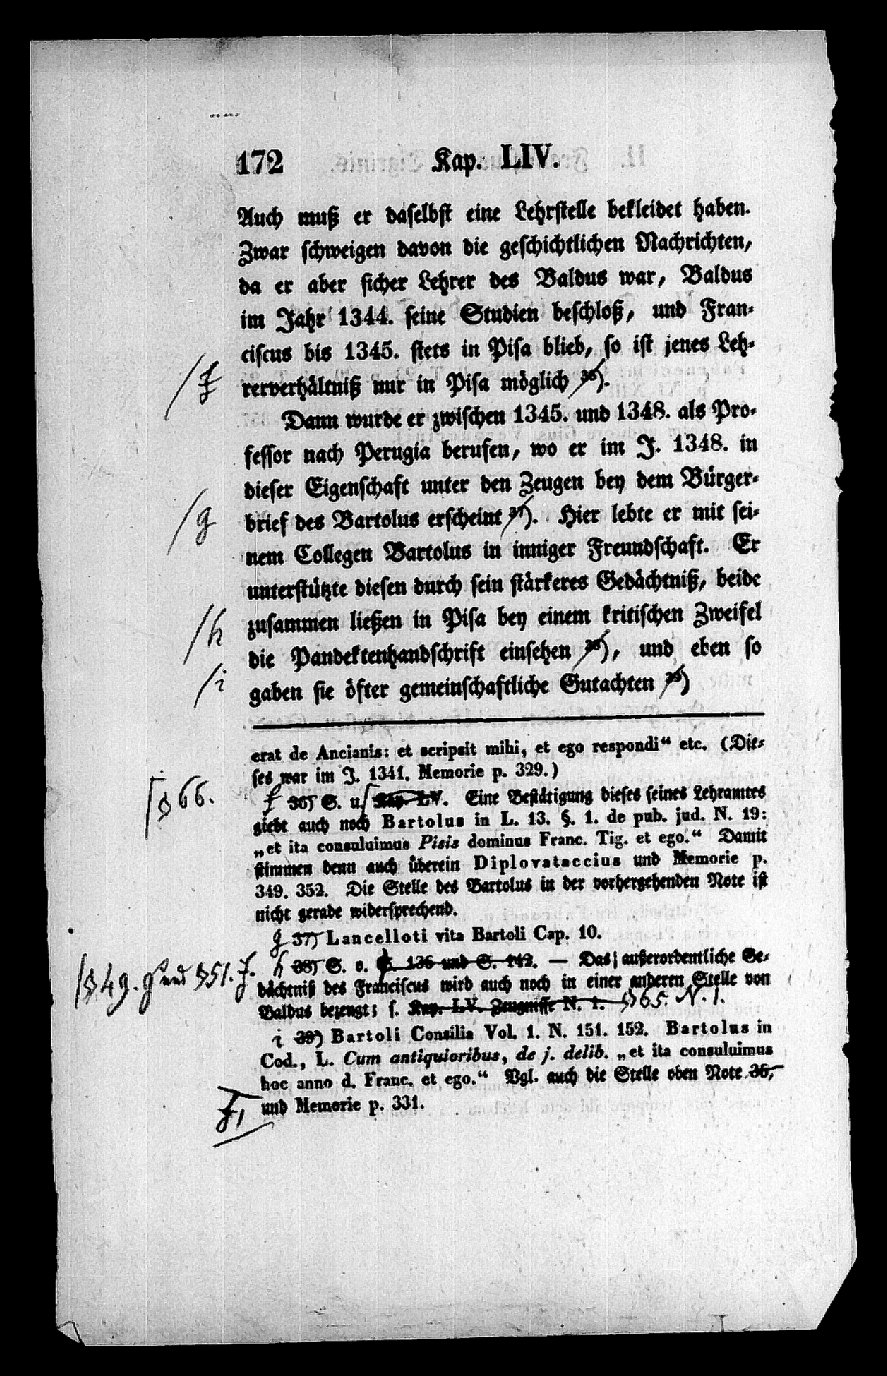 172 Kap. LIV.
Auch muß er daselbst eine Lehrstelle bekleidet haben.
Zwar schweigen davon die geschichtlichen Nachrichten,
da er aber sicher Lehrer des Baldus war, Baldus
im Jahr 1344. seine Studien beschloß, und Fran-
ciscus bis 1345. stets in Pisa blieb, so ist jenes Leh-
/f rerverhältniß nur in Pisa möglich 36).
Dann wurde er zwischen 1345. und 1348. als Pro-
fessor nach Perugia berufen, wo er im J. 1348. in
dieser Eigenschaft unter den Zeugen bey dem Bürger-
/g brief des Bartolus erscheint 37). Hier lebte er mit sei-
nem Collegen Bartolus in inniger Freundschaft. Er
unterstützte diesen durch sein stärkeres Gedächtniß, beide
/h zusammen ließen in Pisa bey einem kritischen Zweifel
die Pandektenhandschrift einsehen 38), und eben so
/i gaben sie öfter gemeinschaftliche Gutachten 39)
erat de Ancianis: et scripsit mihi, et ego respondi“ etc. (Die-
ses war im J. 1341. Memorie p. 329.)
§ 66. f 36) S. u. Kap. LV. Eine Bestätigung dieses seines Lehramtes
giebt auch noch Bartolus in L. 13. §. 1. de pub. jud. N. 19:
„et ita consuluimus Pisis dominus Franc. Tig. et ego.“ Damit
stimmen denn auch überein Diplovataccius und Memorie p.
349. 352. Die Stelle des Bartolus in der vorhergehenden Note ist
nicht gerade widersprechend.
g 37) Lancelloti vita Bartoli Cap. 10.
/§ 49. g und § 51. f. h 38) S. o. S. 136 und S. 142. — Das außerordentliche Ge-
dächtniß des Franciscus wird auch noch in einer anderen Stelle von
Baldus bezeugt; s. Kap. LV. Zeugnisse N. 1. § 65. N. 1.
i 39) Bartoli Consilia Vol. 1. N. 151. 152. Bartolus in
Cod., L. Cum antiquioribus, de j. delib. „et ita consuluimus
hoc anno d. Franc. et ego.“ Vgl. auch die Stelle oben Note 36,
und Memorie p. 331.